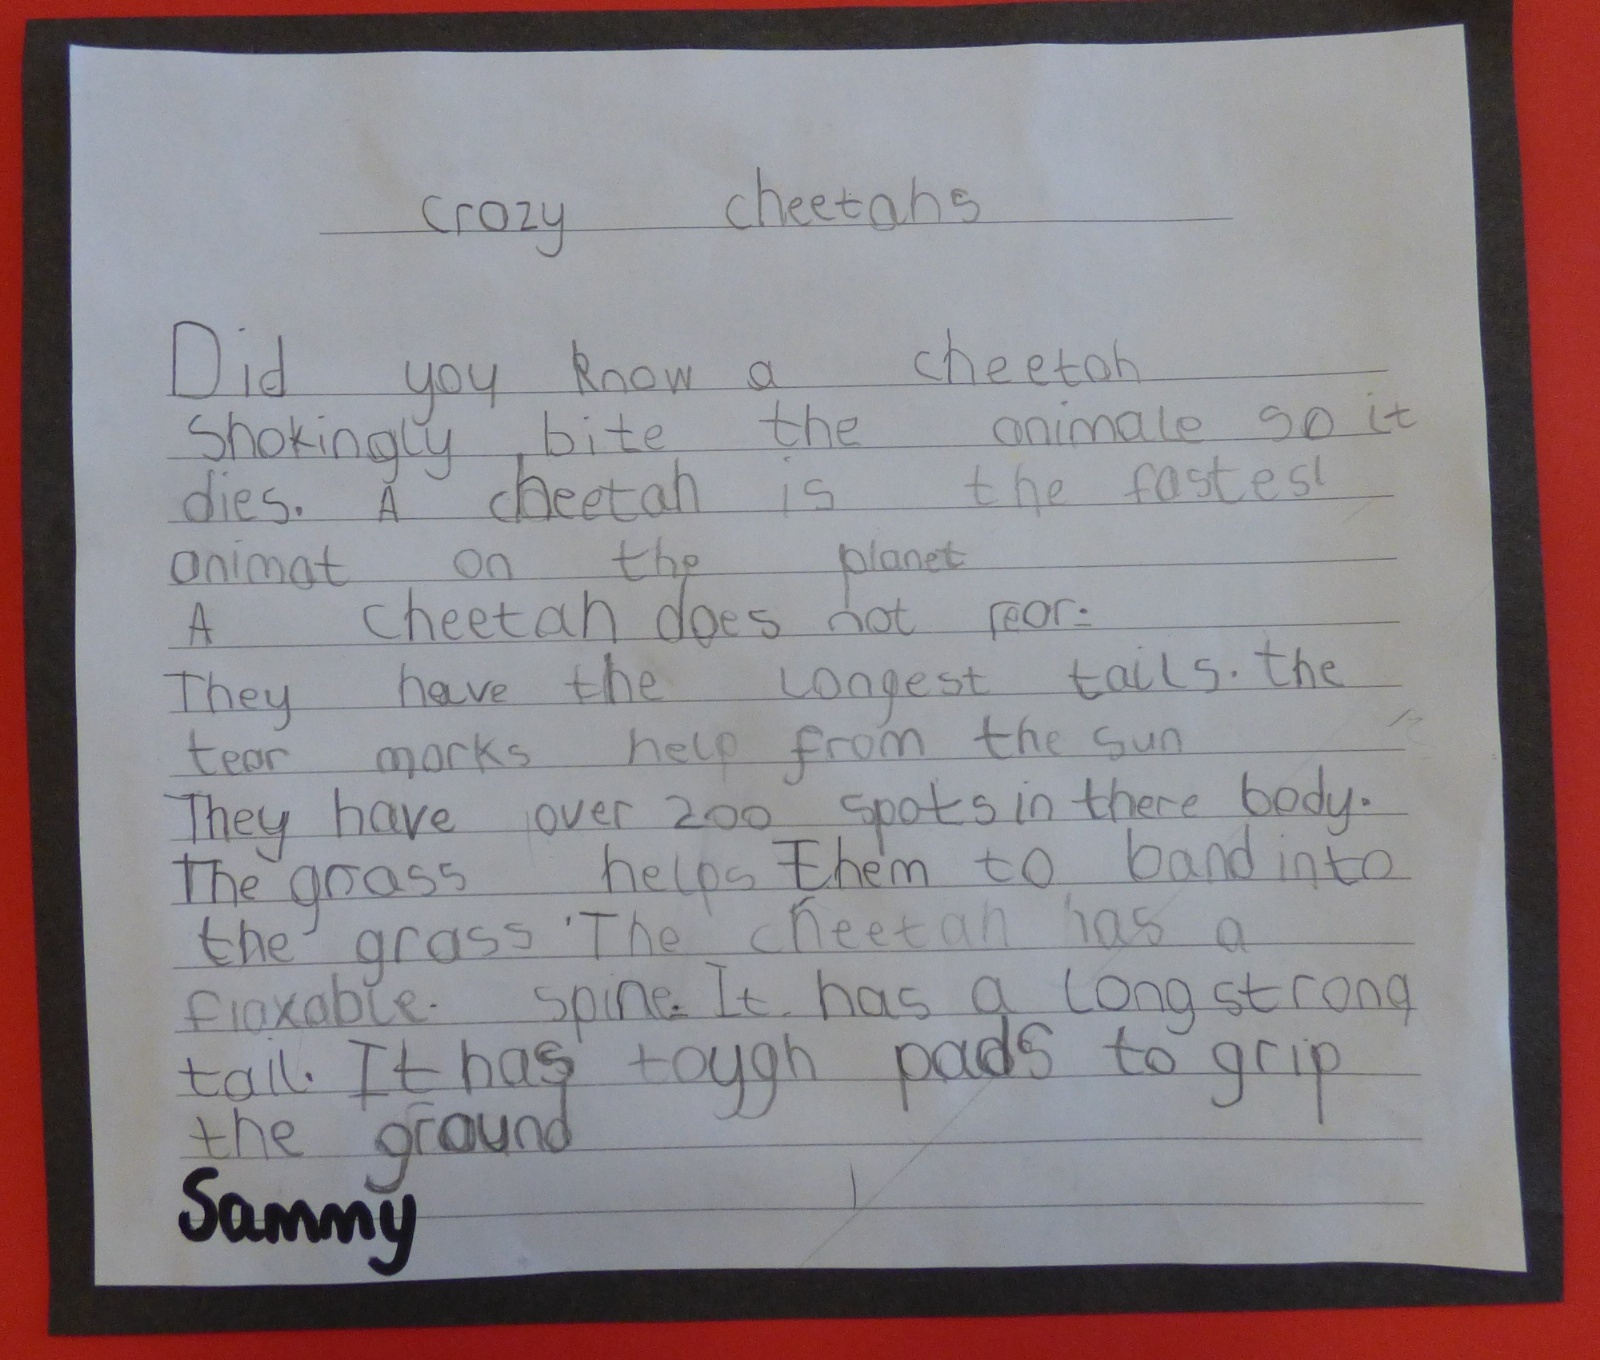 crazy cheetahs
Did you know a cheetah
shokingly bite the animale so it
dies. A cheetah is the fastest
animat on the planet
A cheetah does not roar.
They have the longest tails. the
tear marks help from the sun
They have over 200 spots in there body.
The grass helps them to band into
the grass. The cheetah has a
flaxable. spine. It has a long strong
tail. It has tough pads to grip
the ground
Sammy